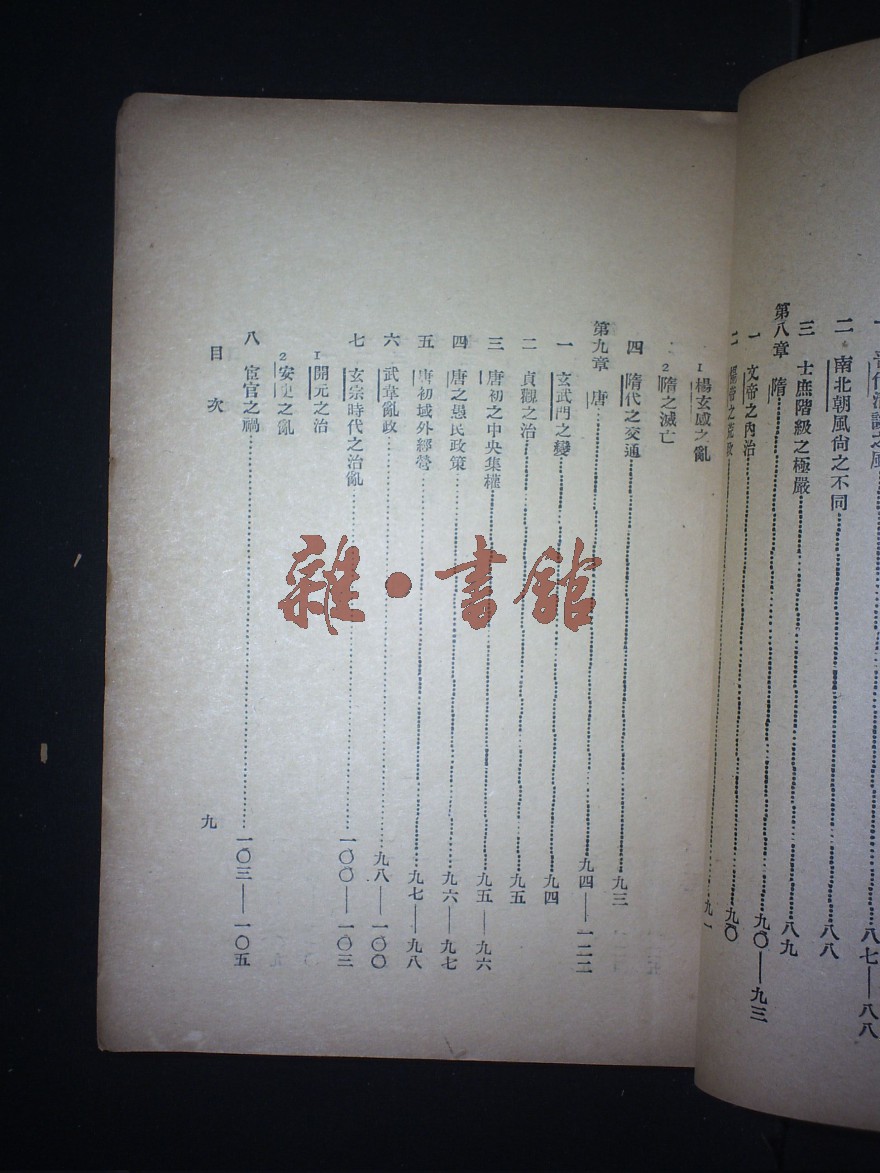 二 南北朝風尙之不同……八八
三 士庶階級之極嚴……八九
第八章 隋……九〇——九三
一 文帝之內治……九〇
二 煬帝之荒政……九一
1 楊玄感之亂
2 隋之滅亡
四 隋代之交通……九三
第九章 唐……九四——一二二
一 玄武門之變……九四
二 貞觀之治……九五
三 唐初之中央集權……九五——九六
四 唐之愚民政策……九六——九七
五 唐初域外經營……九七——九八
六 武韋亂政……九八——一〇〇
七 玄宗時代之治亂……一〇〇——一〇三
1 開元之治
2 安史之亂
八 宦官之禍……一〇三——一〇五
目次 九
雜·書館